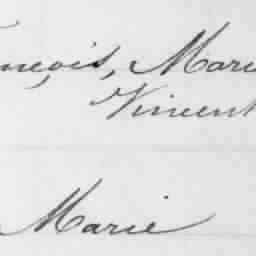 nçois, Marie
Vincent
Marie